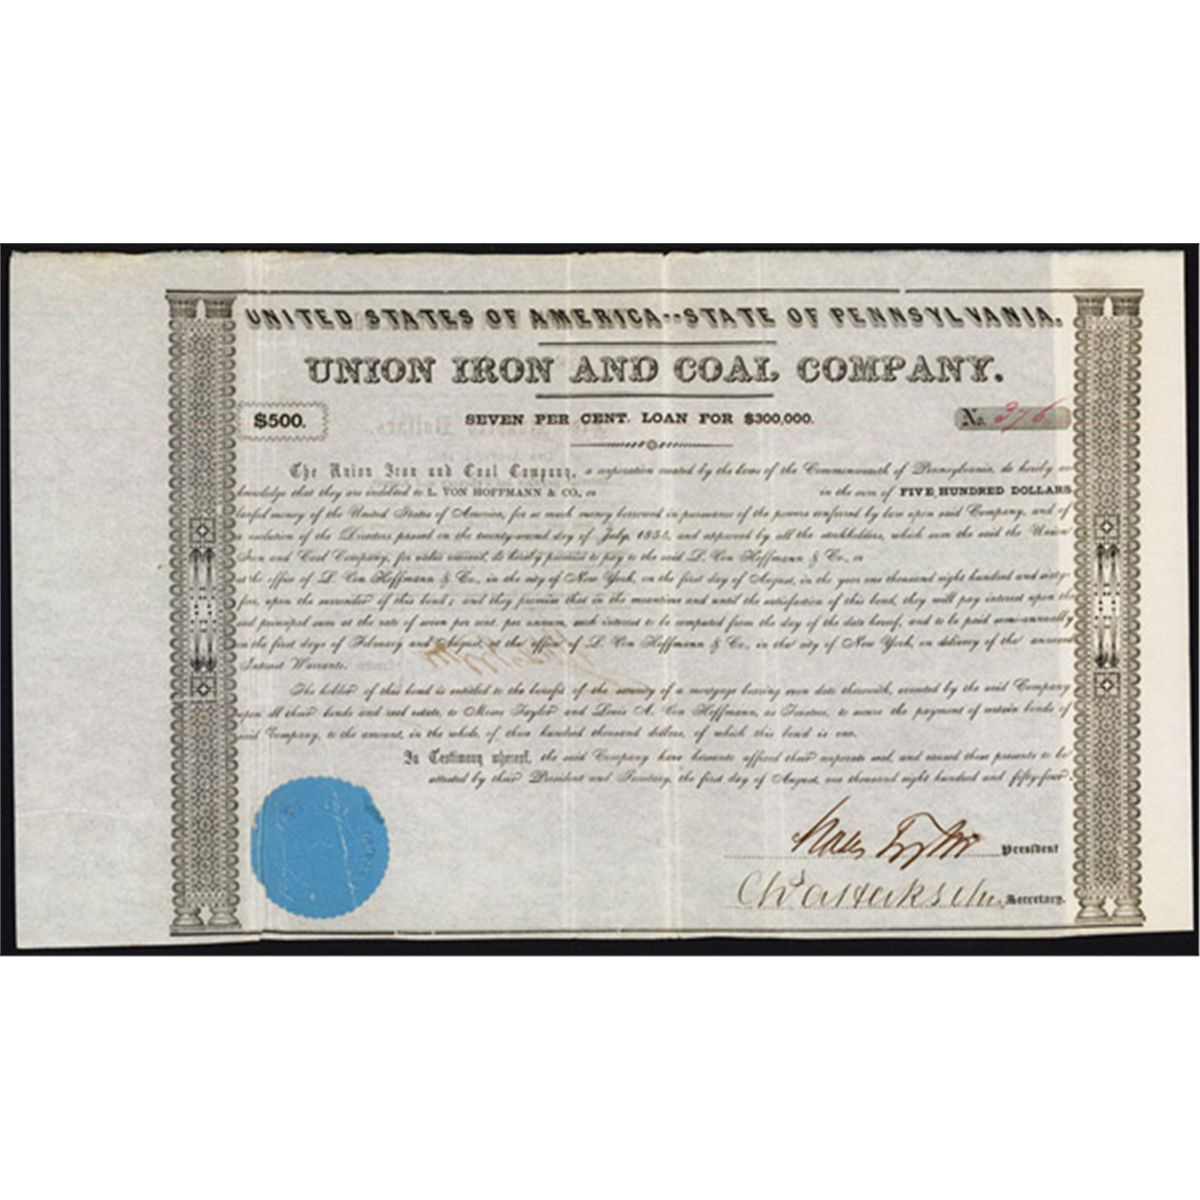 UNITED STATES OF AMERICA--STATE OF PENNSYLVANIA.
UNION IRON AND COAL COMPANY.
$500.
SEVEN PER CENT. LOAN FOR $300,000.
No. 376
The Union Iron and Coal Company, a corporation created by the laws of the Commonwealth of Pennsylvania, do hereby ac-
knowledge that they are indebted to L. VON HOFFMANN & CO., or in the sum of FIVE HUNDRED DOLLARS
lawful money of the United States of America, for so much money borrowed in pursuance of the powers conferred by law upon said Company, and of
a resolution of the Directors passed on the twenty-second day of July, 1854, and approved by all the stockholders, which sum the said the Union
Iron and Coal Company, for value received, do hereby promise to pay to the said L. Von Hoffmann & Co., or
at the office of L. Von Hoffmann & Co., in the city of New York, on the first day of August, in the year one thousand eight hundred and sixty-
five, upon the surrender of this bond; and they promise that in the meantime and until the satisfaction of this bond, they will pay interest upon the
said principal sum at the rate of seven per cent. per annum, such interest to be computed from the day of the date hereof, and to be paid semi-annually
on the first days of February and August, at the office of L. Von Hoffmann & Co., in the city of New York, on delivery of the annexed
Interest Warrants.
The holder of this bond is entitled to the benefit of the security of a mortgage bearing even date therewith, executed by the said Company
upon all their lands and real estate, to Moses Taylor and Louis A. Von Hoffmann, as Trustees, to secure the payment of certain bonds of
said Company, to the amount, in the whole, of three hundred thousand dollars, of which this bond is one.
In Testimony whereof, the said Company have hereunto affixed their corporate seal, and caused these presents to be
attested by their President and Secretary, the first day of August, one thousand eight hundred and fifty-four.
Moses Taylor President
Chs A Heckscher Secretary.